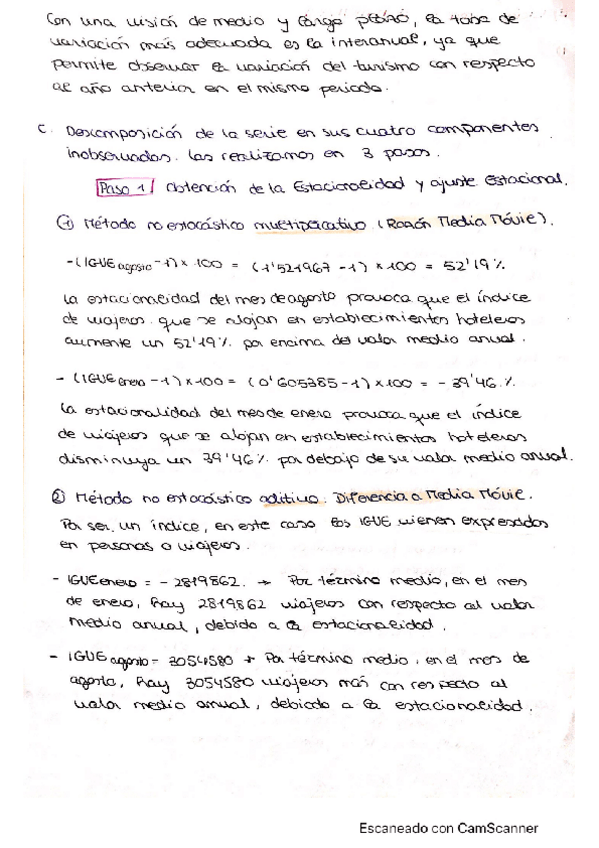 Con una visión de medio y largo plazo, la tasa de
variación más adecuada es la interanual, ya que
permite observar la variación del turismo con respecto
al año anterior en el mismo periodo.
C. Descomposición de la serie en sus cuatro componentes
inobservadas. Las realizamos en 3 pasos.
Paso 1 Obtención de la Estacionalidad y ajuste Estacional.
① Método no estocástico multiplicativo (Razón Media Móvil).
- (IGUE agosto - 1) x 100 = (1'521967 - 1) x 100 = 52'19 %
La estacionalidad del mes de agosto provoca que el índice
de viajeros que se alojan en establecimientos hoteleros
aumente un 52'19% por encima del valor medio anual.
- (IGUE enero - 1) x 100 = (0'605385 - 1) x 100 = - 39'46 %.
La estacionalidad del mes de enero provoca que el índice
de viajeros que se alojan en establecimientos hoteleros
disminuya un 39'46% por debajo de su valor medio anual.
② Método no estocástico aditivo. Diferencia a Media Móvil.
Por ser un índice, en este caso los IGUE vienen expresados
en personas o viajeros.
- IGUE enero = - 2819862. → Por término medio, en el mes
de enero, hay 2819862 viajeros con respecto al valor
medio anual, debido a la estacionalidad.
- IGUE agosto = 3054580 → Por término medio, en el mes de
agosto, hay 3054580 viajeros más con respecto al
valor medio anual, debido a la estacionalidad.
Escaneado con CamScanner